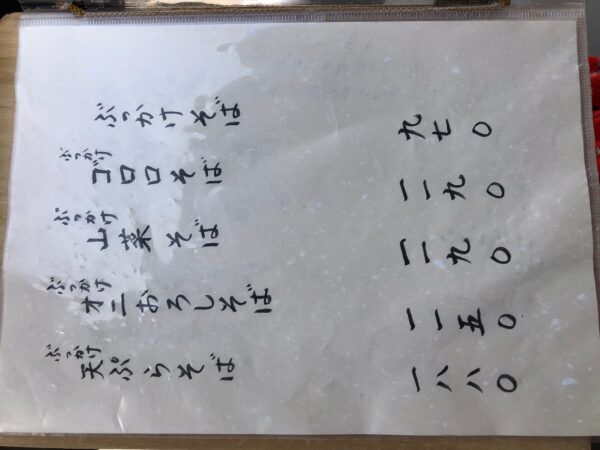 ぶっかけそば 九七〇
ぶっかけ
ゴロロそば 一一九〇
ぶっかけ
山菜そば 一一九〇
ぶっかけ
オニおろしそば 一一五〇
ぶっかけ
天ぷらそば 一八八〇